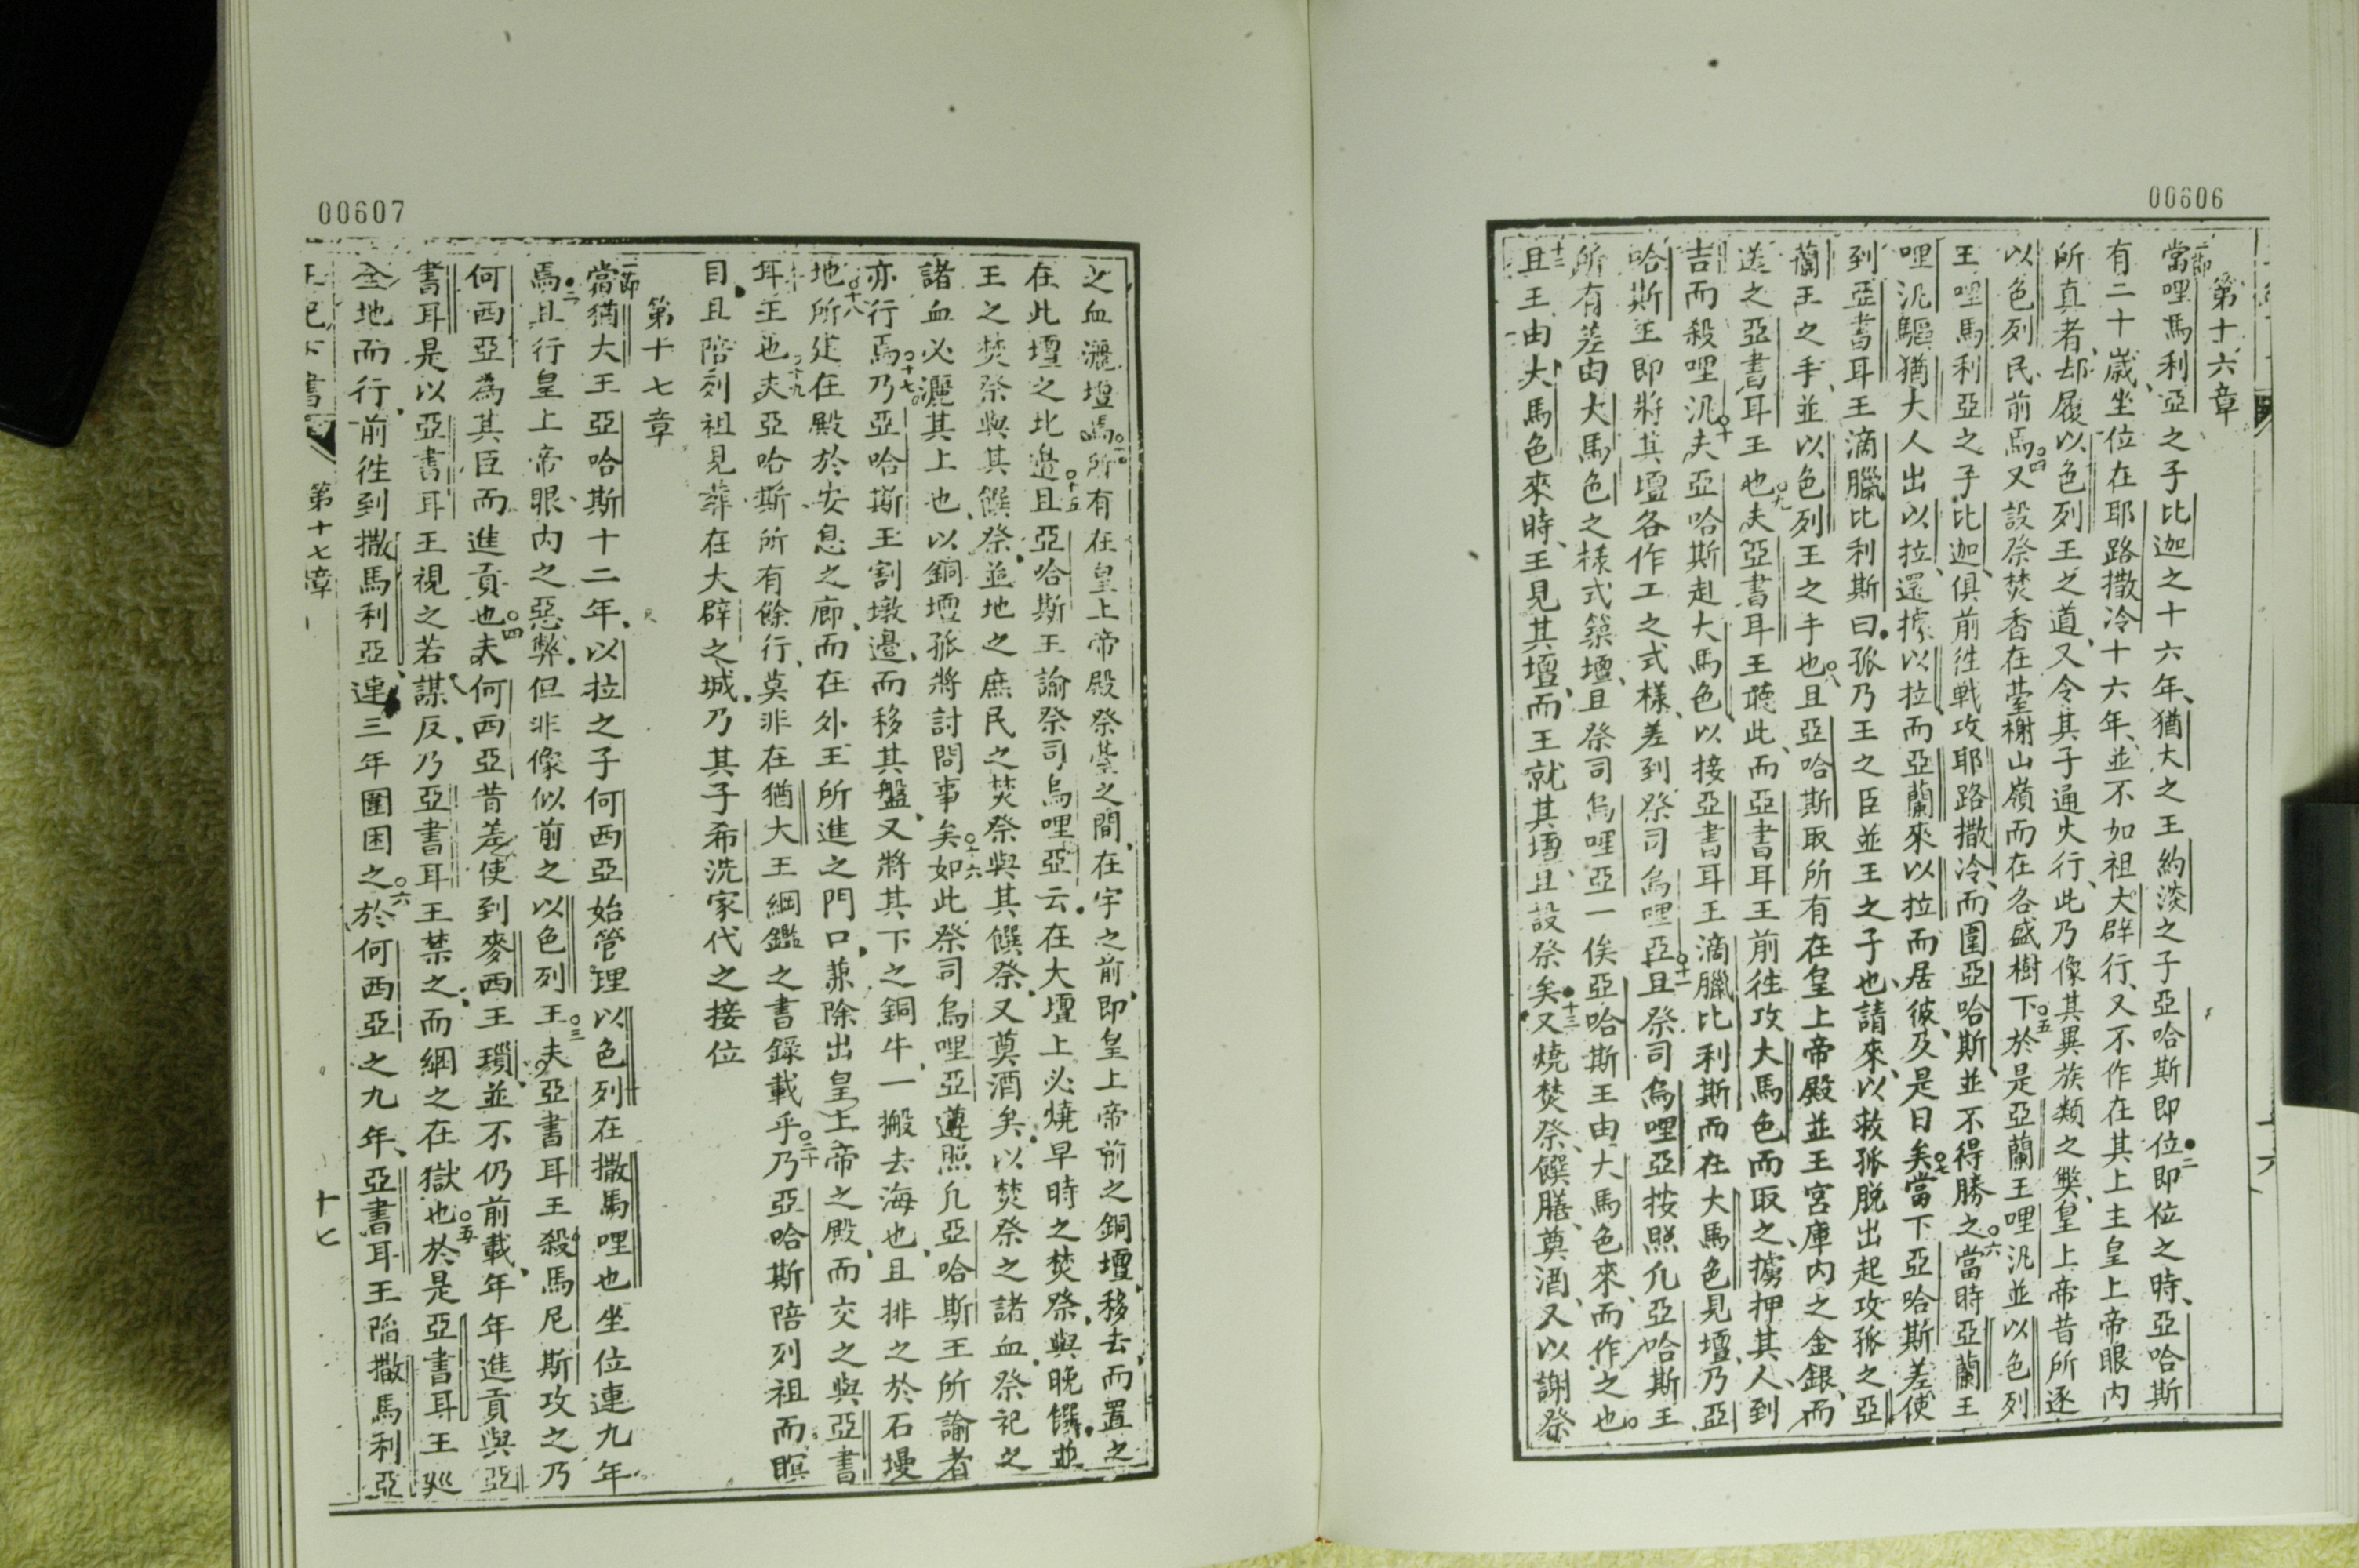 00606
第十六章
一節當哩馬利亞之子比迦之十六年、猶大之王約淡之子亞哈斯即位二即位之時、亞哈斯
有二十歲、坐位在耶路撒冷十六年、並不如祖大辟行、又不作在其上主皇上帝眼內
所真者、却履以色列王之道、又令其子通火行、此乃像其異族類之獘、皇上帝昔所逐
以色列民前焉四又設祭焚香在臺榭山嶺而在各盛樹下五於是亞蘭王哩汎並以色列
王哩馬利亞之子比迦、俱前徃戰攻耶路撒冷、而圍亞哈斯、並不得勝之六當時亞蘭王
哩汎驅猶大人出以拉、還據以拉、而亞蘭來以拉而居彼、及是日矣七當下亞哈斯差使
到亞書耳王滴臘比利斯曰、孤乃王之臣並王之子也、請來、以救孤脫出起攻孤之亞
蘭王之手、並以色列王之手也八且亞哈斯取所有在皇上帝殿並王宮庫內之金銀、而
送之亞書耳王也九夫亞書耳王聽此、而亞書耳王前徃攻大馬色而取之、擄押其人到
吉而殺哩汎十夫亞哈斯赴大馬色、以接亞書耳王滴臘比利斯而在大馬色見壇、乃亞
哈斯王即將其壇各作工之式樣、差到祭司烏哩亞十一且祭司烏哩亞按照凡亞哈斯王
所有差由大馬色之樣式築壇、且祭司烏哩亞一俟亞哈斯王由大馬色來、而作之也。
十二且王由大馬色來時、王見其壇、而王就其壇、且設祭矣十三又燒焚祭、饌膳、奠酒、又以謝祭
十六
00607
之血灑壇焉十四所有在皇上帝殿祭臺之間、在宇之前、即皇上帝前之銅壇、移去、而置之
在此壇之北邊十五且亞哈斯王諭祭司烏哩亞云、在大壇上必燒早時之焚祭、與晚饌、並
王之焚祭與其饌祭、並地之庶民之焚祭與其饌祭、又奠酒矣、以焚祭之諸血、祭祀之
諸血必灑其上也、以銅壇孤將討問事矣十六如此祭司烏哩亞遵照凡亞哈斯王所諭者
亦行焉十七乃亞哈斯王割墩邊、而移其盤、又將其下之銅牛、一搬去海也、且排之於石墁
地十八所建在殿於安息之廊、而在外王所進之門口、兼除出皇上帝之殿、而交之與亞書
耳王也十九夫亞哈斯所有餘行、莫非在猶大王綱鑑之書錄載乎二十乃亞哈斯陪列祖而瞑
目、且陪列祖見葬在大辟之城、乃其子希洗家代之接位
第十七章
一節當猶大王亞哈斯十二年、以拉之子何西亞始管理以色列在撒馬哩也坐位連九年
焉二且行皇上帝眼內之惡弊、但非像似前之以色列王三夫亞書耳王殺馬尼斯攻之乃
何西亞為其臣而進貢也四夫何西亞昔差使到麥西王瑣、並不仍前載、年年進貢與亞
書耳是以亞書耳王視之若謀反、乃亞書耳王禁之、而綑之在獄也五於是亞書耳王廵
全地而行、前徃到撒馬利亞、連三年圍困之六於何西亞之九年、亞書耳王陷撒馬利亞
王紀下書 第十七章 十七